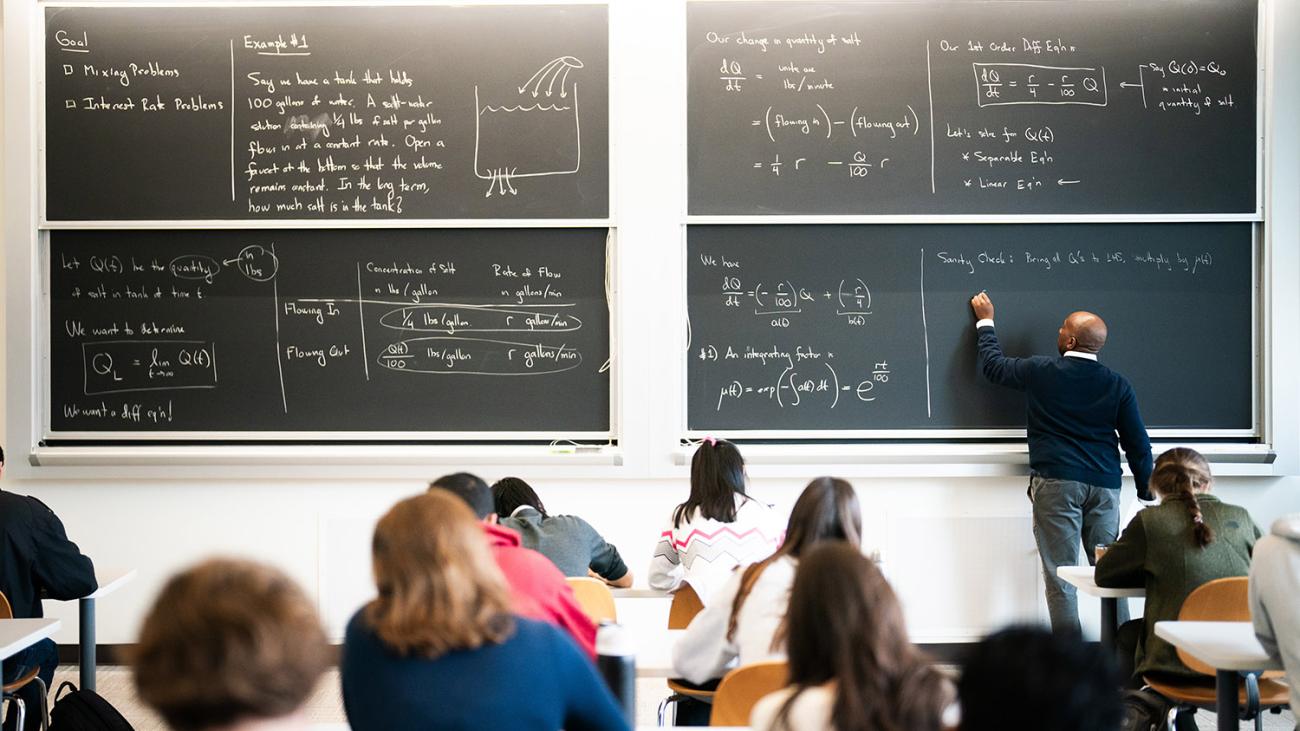 Goal
□ Mixing Problems
□ Interest Rate Problems
Example #1
Say we have a tank that holds
100 gallons of water. A salt-water
solution containing 1/4 lbs of salt per gallon
flows in at a constant rate. Open a
faucet at the bottom so that the volume
remains constant. In the long term,
how much salt is in the tank?
Let Q(t) be the quantity
in lbs
of salt in tank at time t
We want to determine
Q_L = lim_{t→∞} Q(t)
We want a diff eq'n!
Concentration of Salt Rate of Flow
in lbs/gallon in gallons/min
Flowing In 1/4 lbs/gallon r gallons/min
Flowing Out Q(t)/100 lbs/gallon r gallons/min
Our change in quantity of salt
dQ/dt = units are
lbs/minute
= (flowing in) - (flowing out)
= 1/4 r - Q/100 r
Our 1st Order Diff Eq'n is
dQ/dt = r/4 - r/100 Q
Say Q(0)=Q₀
is initial
quantity of salt
Let's solve for Q(t)
* Separable Eq'n
* Linear Eq'n ←
We have
dQ/dt = (-r/100)Q + (-r/4)
a(t) b(t)
#1) An integrating factor is
μ(t) = exp(-∫a(t) dt) = e^{rt/100}
Sanity Check: Bring all Q's to LHS, multiply by μ(t)